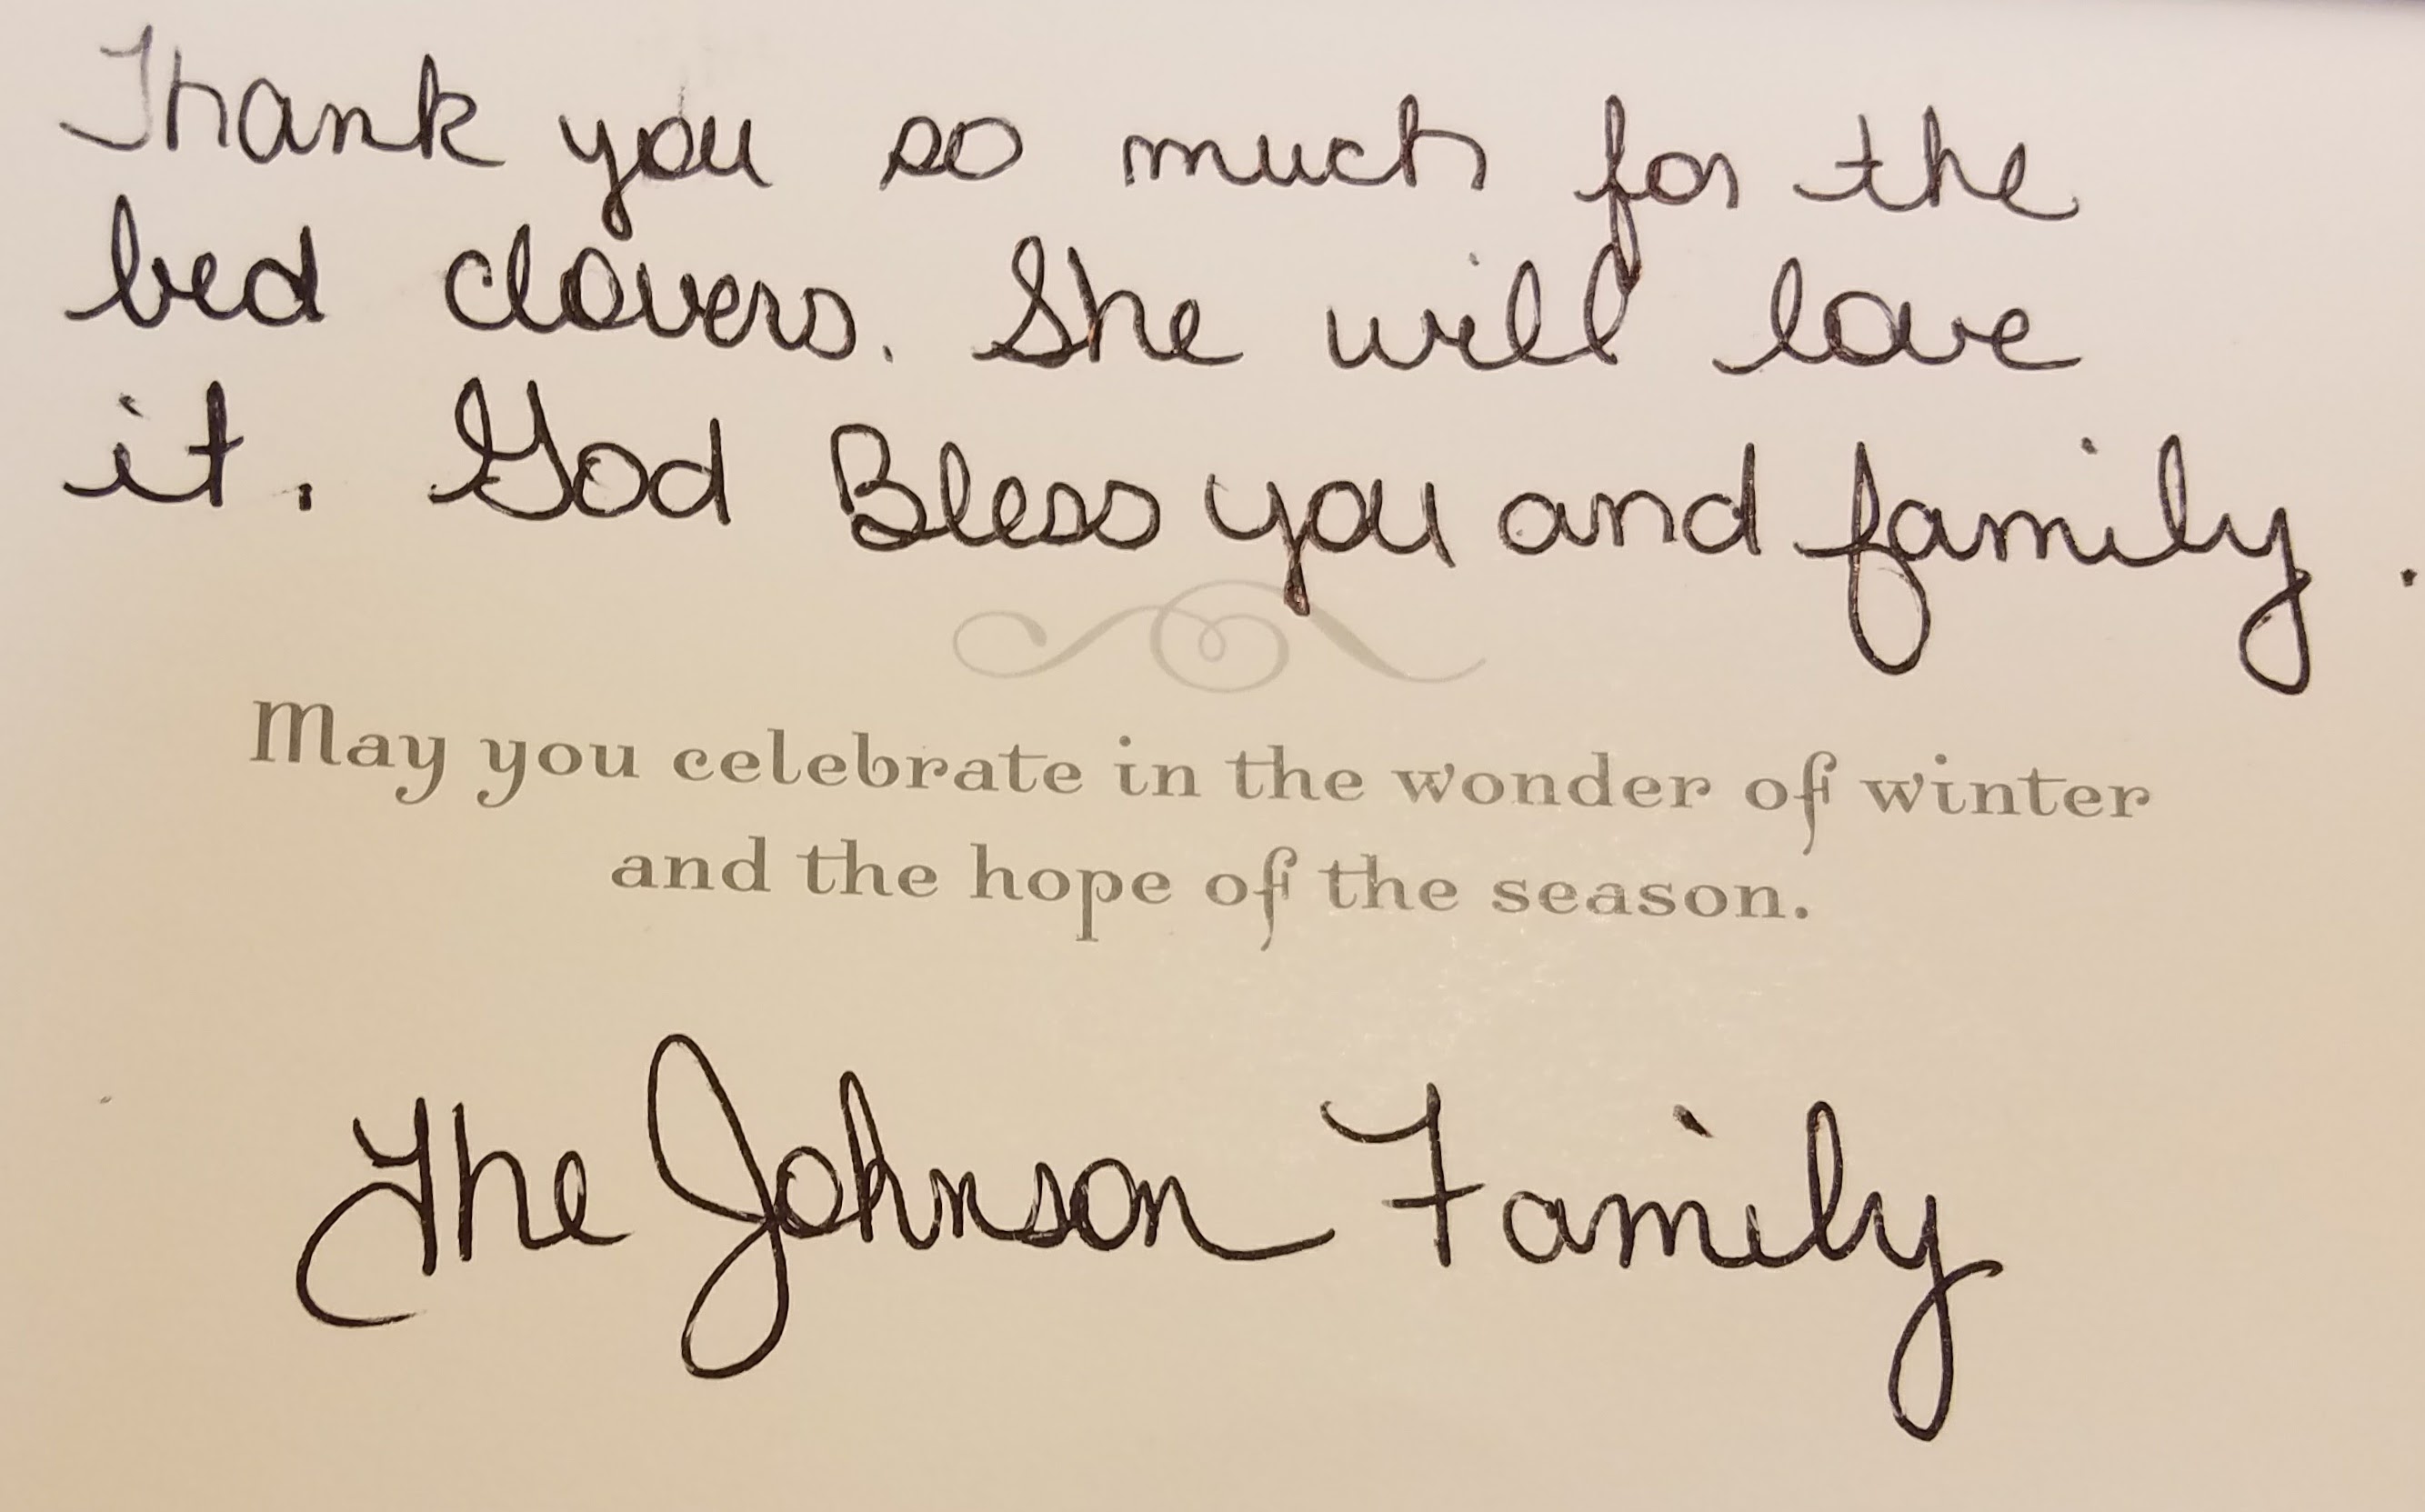 Thank you so much for the
bed clovers. She will love
it. God Bless you and family.
May you celebrate in the wonder of winter
and the hope of the season.
The Johnson Family